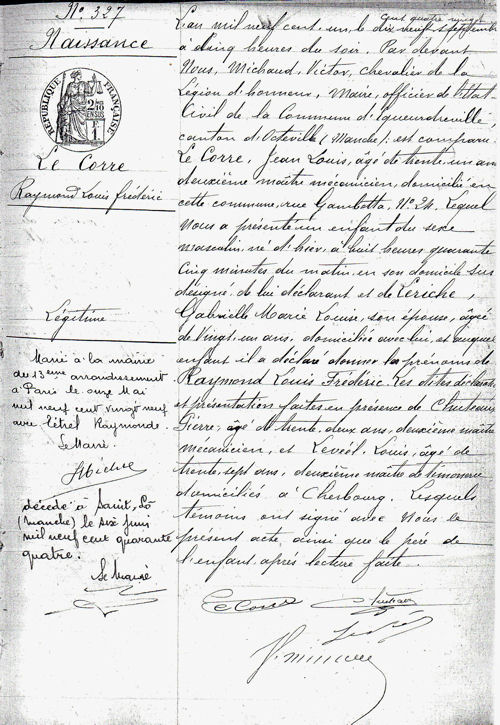 No. 327
Naissance
RÉPUBLIQUE FRANÇAISE
Le Corre
Raymond Louis Frédéric
Légitime
Marié à la mairie
du 13ème arrondissement
à Paris le onze Mai
mil neuf cent vingt neuf
avec Létrel Raymonde.
Le Maire
décédé à Saint-Lô
(Manche) le six juin
mil neuf cent quarante
quatre.
Le Maire
L'an mil neuf cent un, le dix neuf septembre
à cinq heures du soir. Par devant
Nous, Michaud, Victor, chevalier de la
Légion d'honneur, Maire, officier de l'Etat
Civil de la Commune d'Equeurdreville
canton d'Octeville (Manche); est comparu
Le Corre, Jean Louis, âgé de trente un ans
deuxième maître mécanicien, domicilié en
cette commune, rue Gambetta, No. 24. Lequel
Nous a présenté un enfant du sexe
masculin, né d'hier, à huit heures quarante
cinq minutes du matin, en son domicile sus
désigné, de lui déclarant et de Leriche,
Gabrielle Marie Louise, son épouse, âgée
de Vingt un ans, domiciliée avec lui, et auquel
enfant il a déclaré donner les prénoms de
Raymond Louis Frédéric. Les dites déclaration
et présentation faites en présence de
Pierre, âgé de trente deux ans, deuxième maître
mécanicien, et Levéel, Louis, âgé de
trente sept ans, deuxième maître de timonerie
domiciliés à Cherbourg. Lesquels
témoins ont signé avec Nous le
présent acte, ainsi que le père de
l'enfant, après lecture faite.
Le Corre